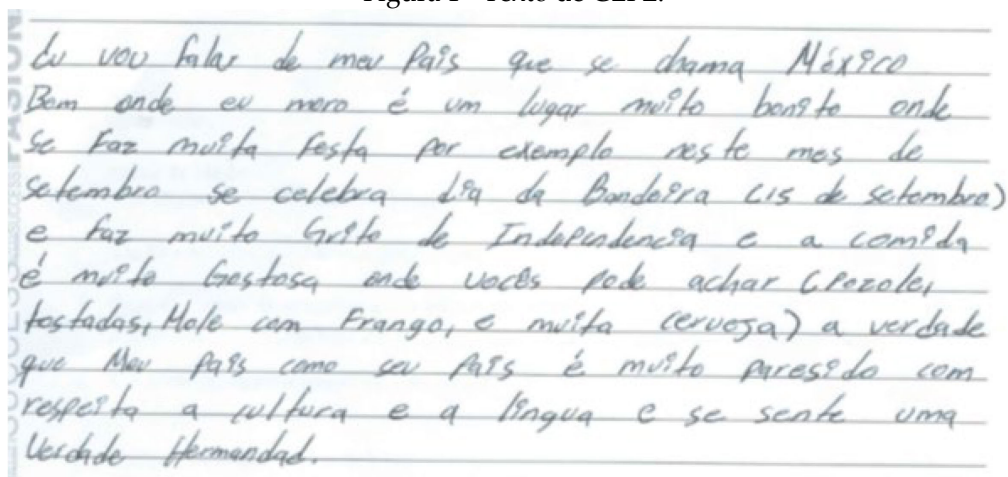 Eu vou falar de meu País que se chama México
Bom onde eu moro é um lugar muito bonito onde
se Faz muita Festa por exemplo neste mes de
setembro se celebra dia da Bandeira (15 de setembro)
e faz muito Grito de Independencia e a comida
é muito Gostosa onde vocês pode achar (Pozole,
tostadas, Mole com Frango, e muita cerveja) a verdade
que Meu País como seu País é muito paresido com
respeita a cultura e a língua e se sente uma
Verdade Hermandad.